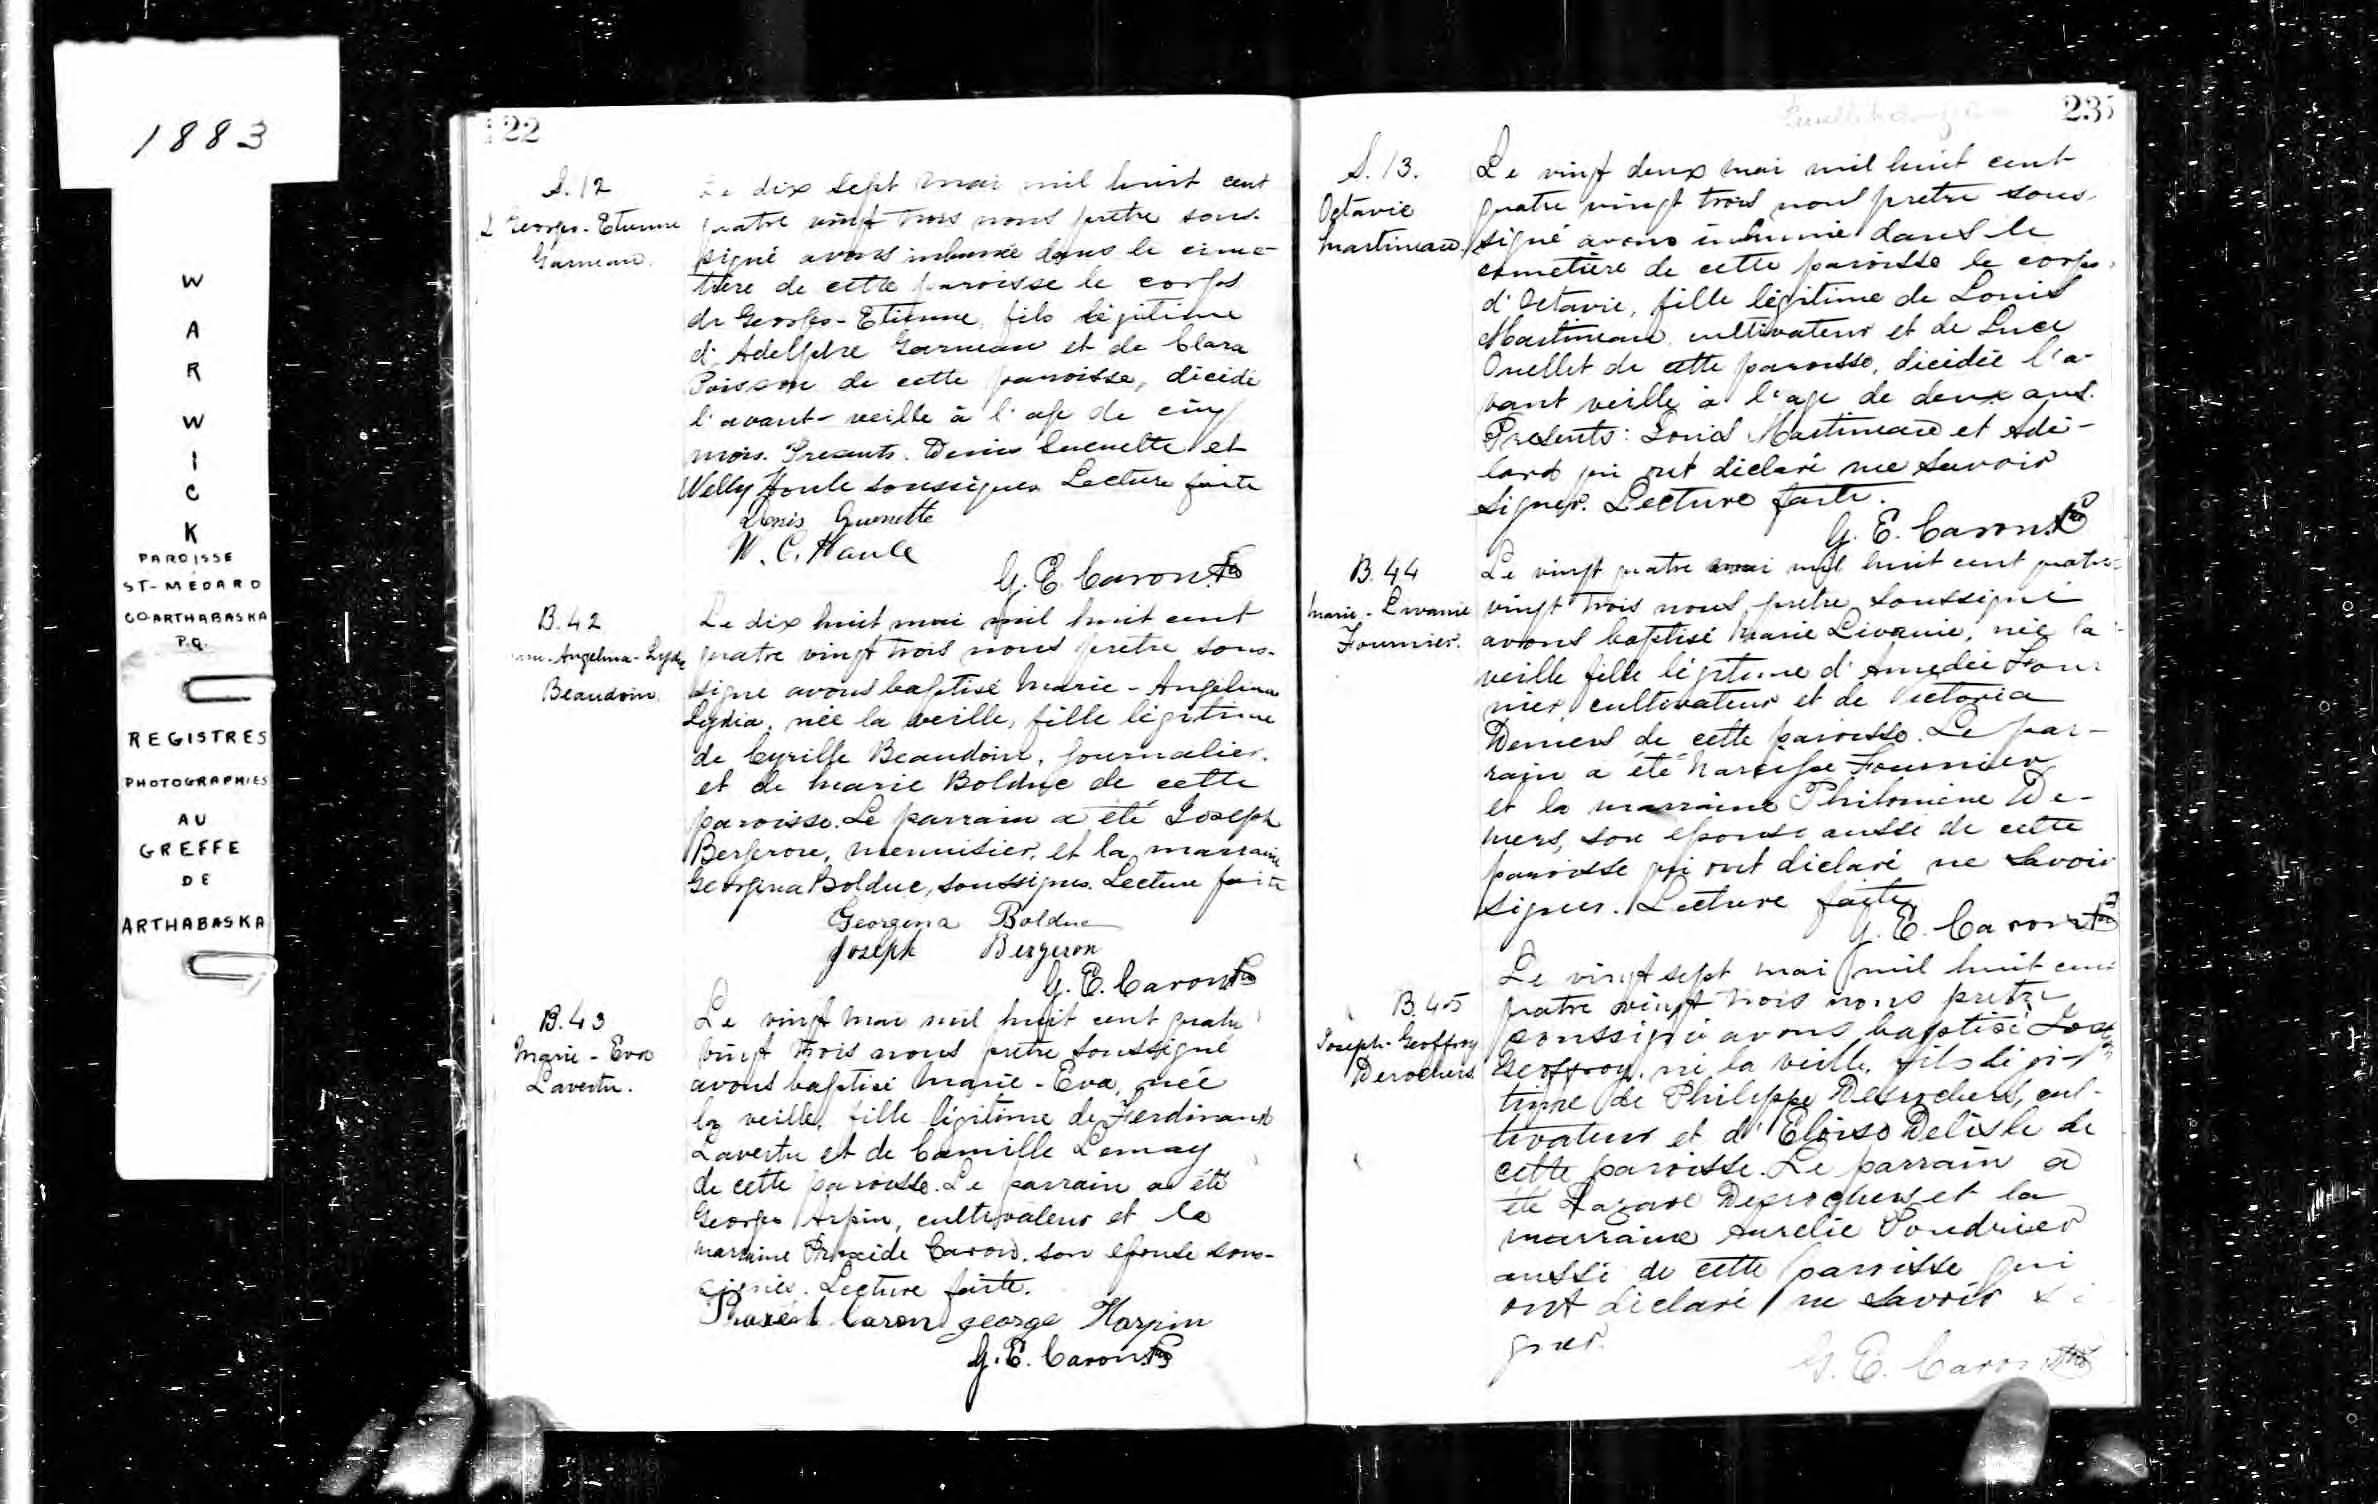 1883
W
A
R
W
I
C
K
PAROISSE
ST-MÉDARD
CO ARTHABASKA
P.Q.
REGISTRES
PHOTOGRAPHIES
AU
GREFFE
DE
ARTHABASKA
22
S. 12
Georges-Etienne
Garneau.
Le dix sept mai mil huit cent
quatre vingt trois nous prêtre sous-
signé avons inhumé dans le cime-
tière de cette paroisse le corps
de Georges-Etienne, fils légitime
d'Adelphe Garneau et de Clara
Poisson de cette paroisse, décédé
l'avant-veille à l'age de cinq
mois. Presents. Denis Guenette et
Welly Houle soussignés Lecture faite
Denis Guenette
W. C. Houle
G. E. Caron Ptre
B. 42
Angelina-Lydia
Beaudoin.
Le dix huit mai mil huit cent
quatre vingt trois nous prêtre sous-
signé avons baptisé Marie-Angelina
Lydia, née la veille, fille légitime
de Cyrille Beaudoin, journalier,
et de Marie Bolduc de cette
paroisse. Le parrain a été Joseph
Bergeron, menuisier, et la marraine
Georgina Bolduc, soussignés. Lecture faite
Georgina Bolduc
Joseph Bergeron
G. E. Caron Ptre
B. 43
Marie-Eva
Lavertu.
Le vingt mai mil huit cent quatre
vingt trois nous prêtre soussigné
avons baptisé Marie-Eva, née
la veille, fille légitime de Ferdinand
Lavertu et de Camille Lemay
de cette paroisse. Le parrain a été
Georges Arpin, cultivateur et la
marraine Praxède Caron, son epouse sous-
signés. Lecture faite.
Caron george Harpin
G. E. Caron Ptre
23
S. 13.
Octavie
Martineau.
Le vingt deux mai mil huit cent
quatre vingt trois nous prêtre sous-
signé avons inhumé dans le
cemetière de cette paroisse le corps
d'Octavie, fille légitime de Louis
Martineau cultivateur et de Luce
Ouellet de cette paroisse, décédée l'a-
vant veille à l'age de deux ans.
Presents: Louis Martineau et Adé-
lard qui ont déclaré ne savoir
signer. Lecture faite.
G. E. Caron Ptre
B. 44
Marie-Livanie
Fournier.
Le vingt quatre mai mil huit cent quatre-
vingt trois nous prêtre soussigné
avons baptisé Marie Livanie, née la
veille fille légitime d'Amedée Four
nier, cultivateur et de Victoria
Demers de cette paroisse. Le par-
rain a été Narcisse Fournier
et la marraine Philomène De-
mers, son epouse aussi de cette
paroisse qui ont déclaré ne savoir
signer. Lecture faite
G. E. Caron Ptre
B. 45
Joseph-Geoffroy
Derochers
Le vingt sept mai mil huit cent
quatre vingt trois nous prêtre
soussigné avons baptisé Joseph
Geoffroy, né la veille, fils légi-
time de Philippe Desrochers, cul-
tivateur et d'Eloise Delisle de
cette paroisse. Le parrain a
été Lazare Desrochers et la
marraine Aurelie Poudrier
aussi de cette paroisse qui
ont déclaré ne savoir si
gner.
G. E. Caron Ptre